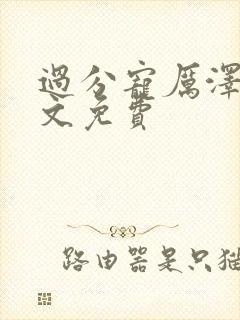 過分寵厲澤
文免費
路由器是只猫